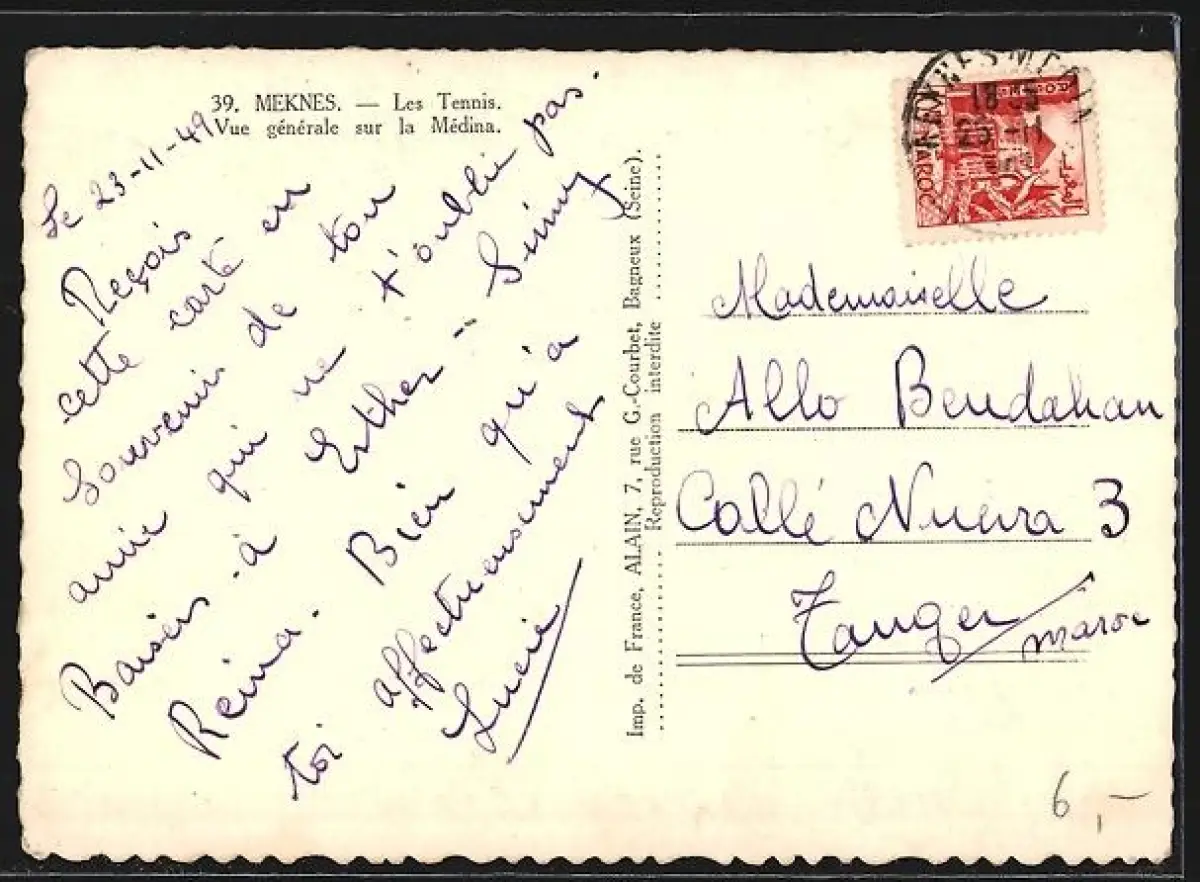 39. MEKNES. — Les Tennis.
Vue générale sur la Médina.
Le 23-11-49
Reçois
cette carte en
souvenir de ton
amie qui ne t'oublie pas.
Baisers à Esther - Simy
Reina. Bien qu'à
toi affectueusement
Lucie
Imp. de France, ALAIN, 7, rue G.-Courbet, Bagneux (Seine).
Reproduction interdite
MEKNES-M
18
11
MAROC
Mademoiselle
Allo Bendahan
Callé Nueva 3
Tanger
maroc
6,—